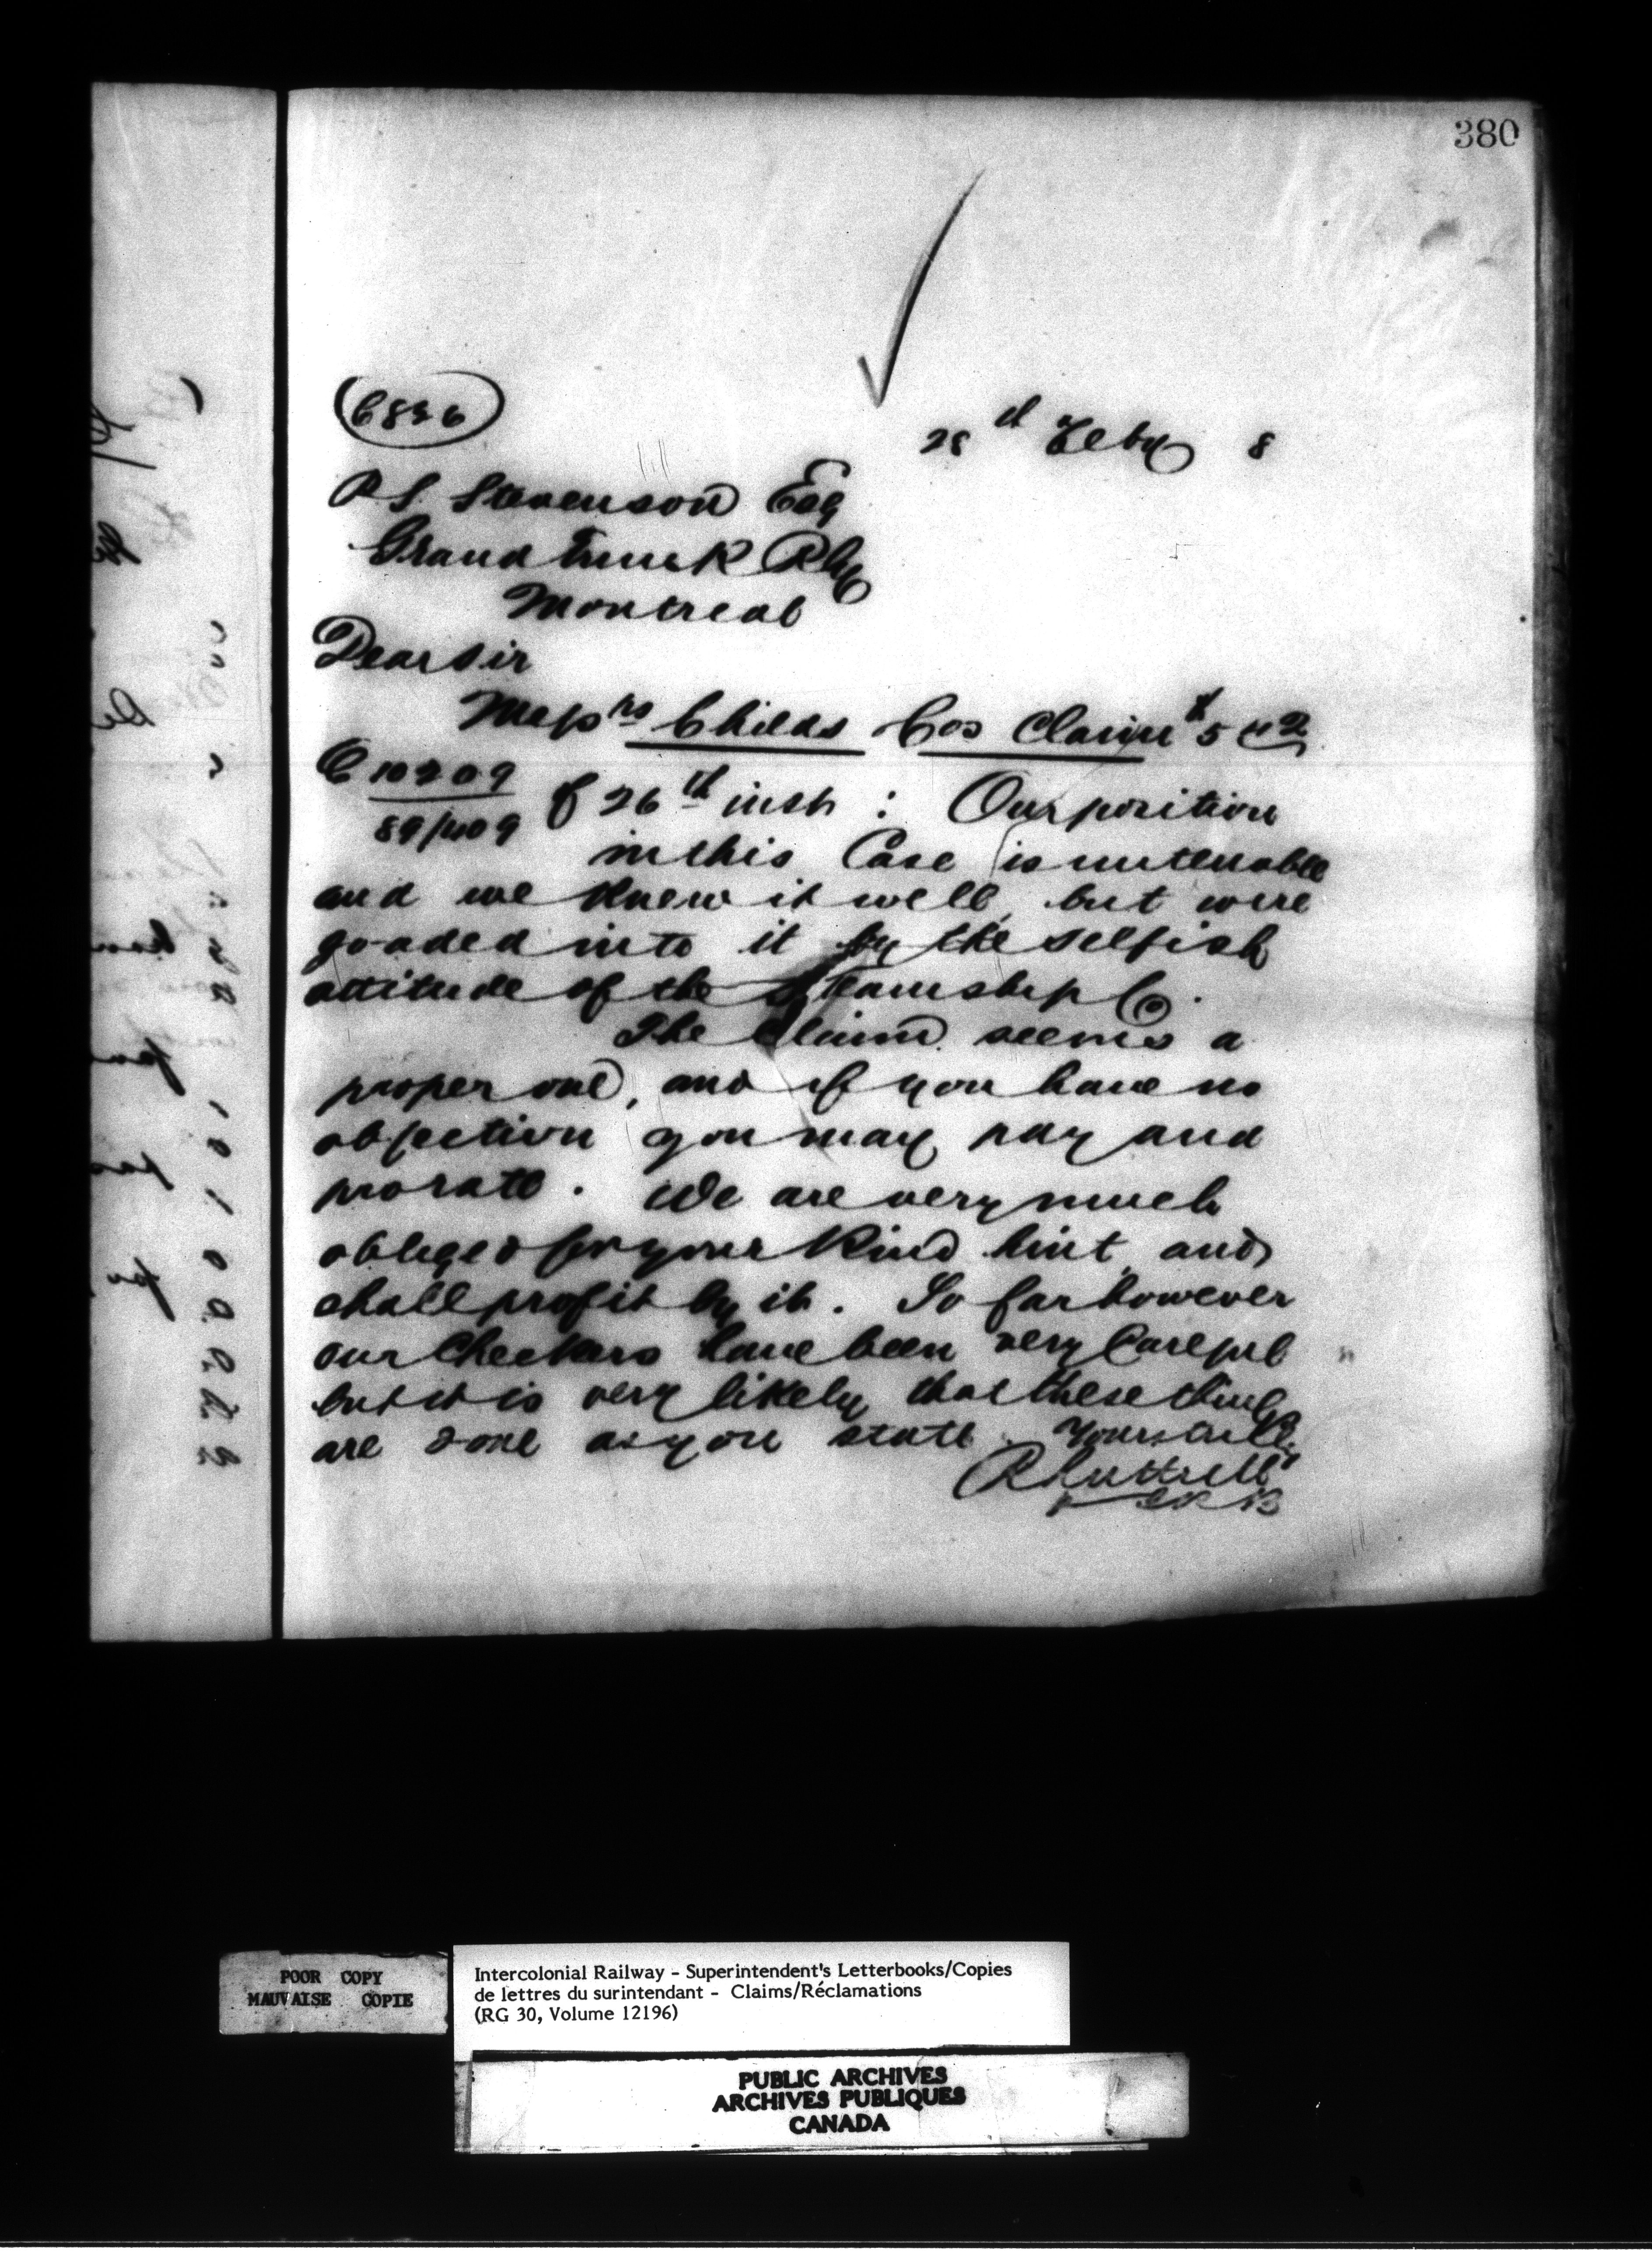 380
28th Feby 8
P S Stevenson Esq
Grand Trunk Rly
Montreal
Dear Sir
Messrs Childs Cos Claim $5
C 10209
89/409 of 26th inst: Our position
in this Case is untenable
and we knew it well, but were
goaded into it by the selfish
attitude of the Steamship Co.
The Claim seems a
proper one, and if you have no
objection you may pay and
prorate. We are very much
obliged for your kind hint and
shall profit by it. So far however
our Checkers have been very Careful
but it is very likely that these things
are done as you state. Yours truly
R Luttrell
POOR COPY
MAUVAISE COPIE
Intercolonial Railway - Superintendent's Letterbooks/Copies
de lettres du surintendant - Claims/Réclamations
(RG 30, Volume 12196)
PUBLIC ARCHIVES
ARCHIVES PUBLIQUES
CANADA